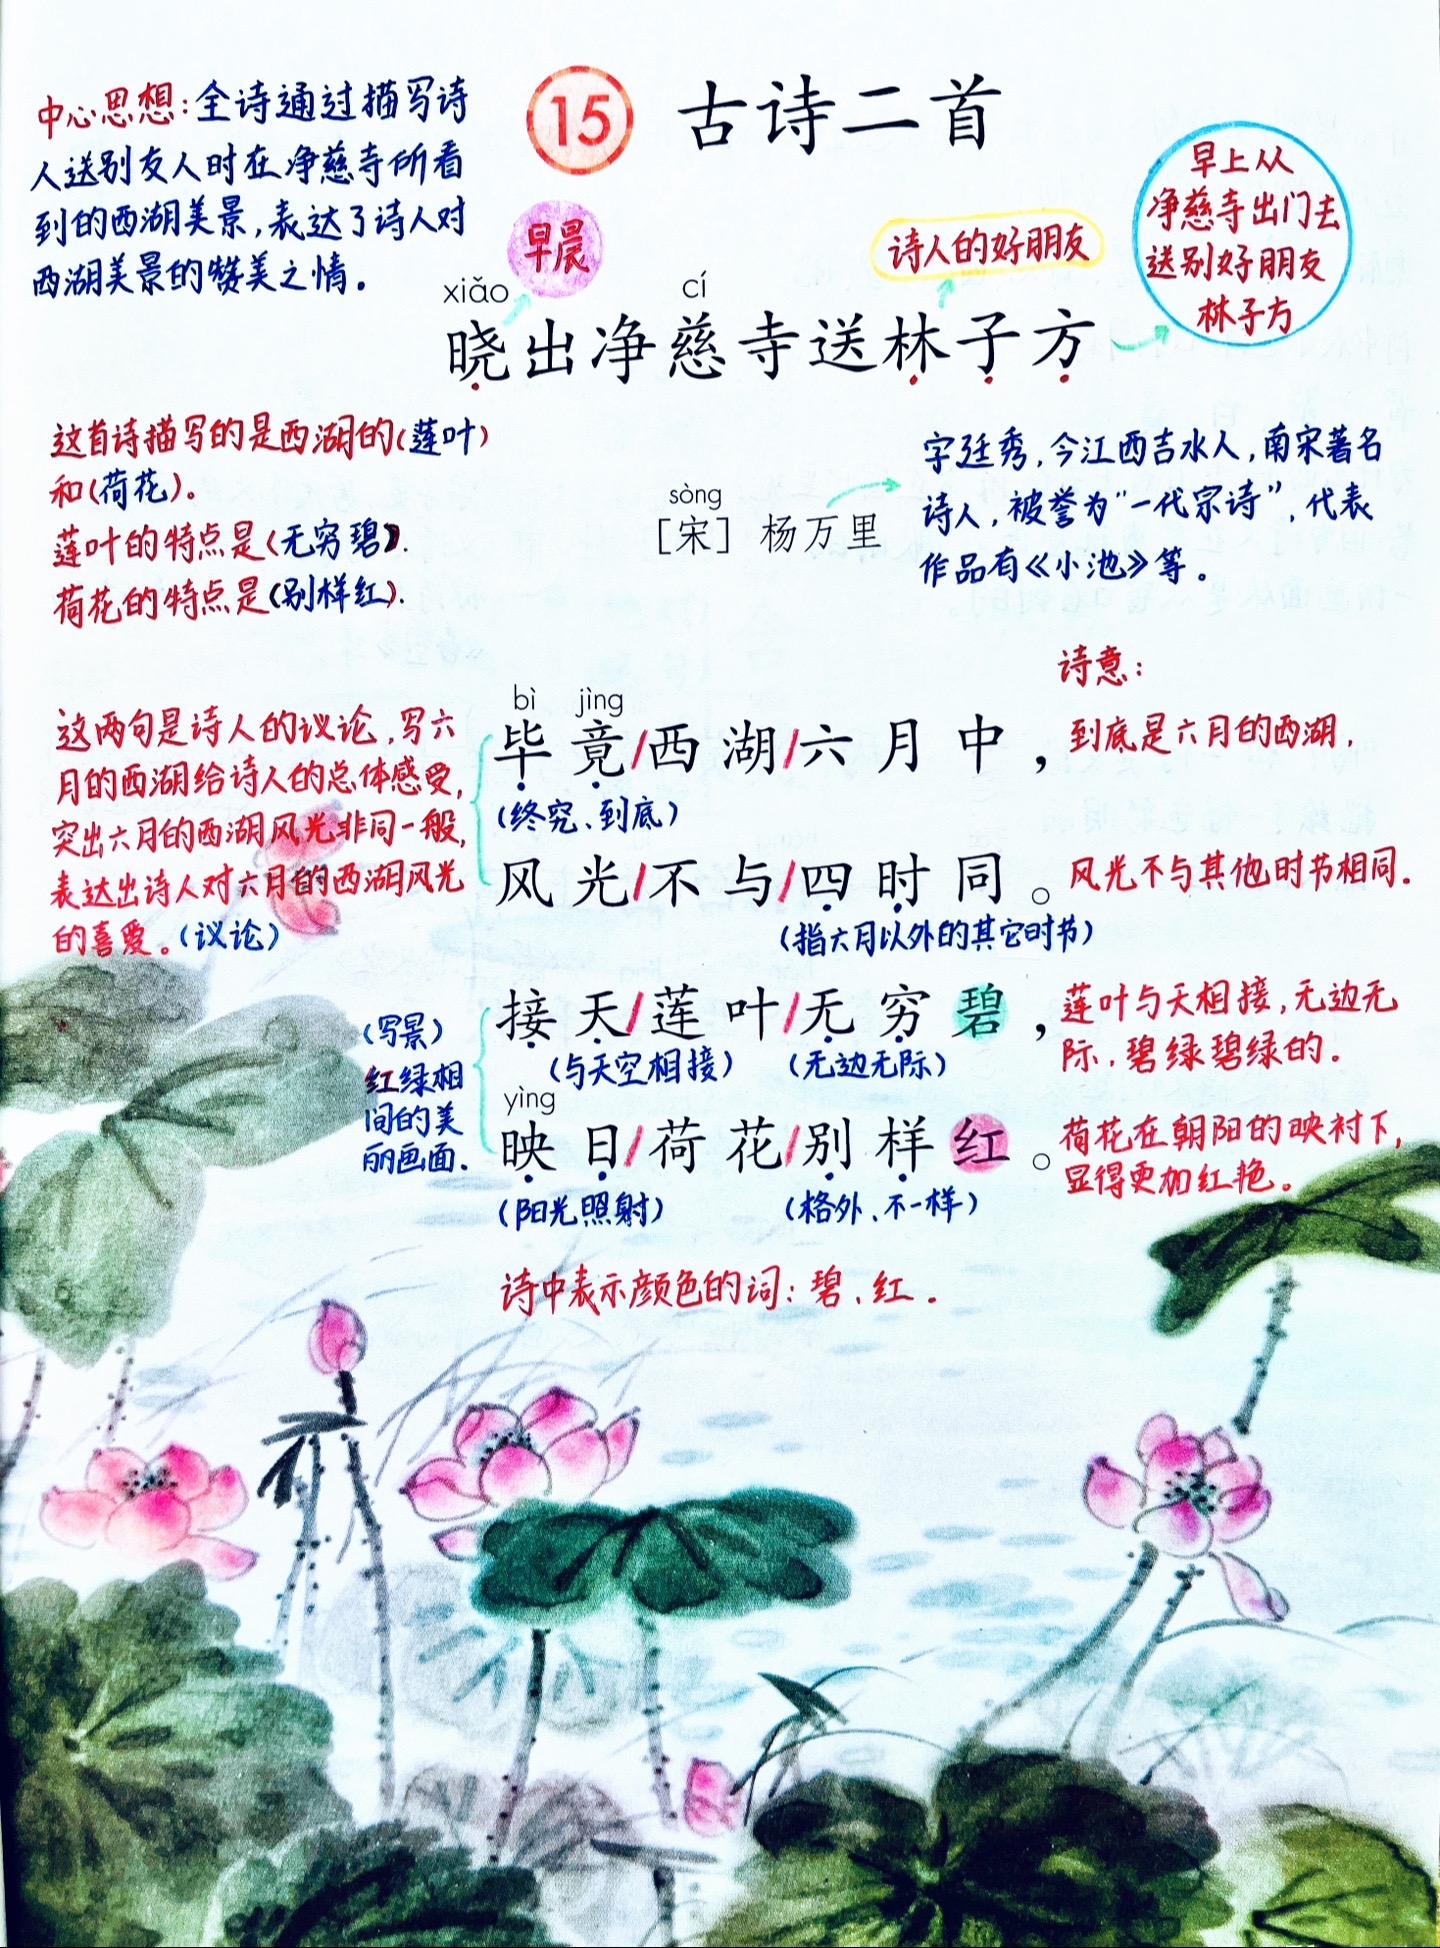 15 古诗二首
中心思想：全诗通过描写诗
人送别友人时在净慈寺所看
到的西湖美景，表达了诗人对
西湖美景的赞美之情。
早晨
诗人的好朋友
早上从
净慈寺出门去
送别好朋友
林子方
xiǎo cí
晓出净慈寺送林子方
这首诗描写的是西湖的(莲叶)
和(荷花)。
莲叶的特点是(无穷碧).
荷花的特点是(别样红).
sòng
[宋] 杨万里
字廷秀，今江西吉水人，南宋著名
诗人，被誉为“一代宗诗”，代表
作品有《小池》等。
诗意：
这两句是诗人的议论，写六
月的西湖给诗人的总体感受，
突出六月的西湖风光非同一般，
表达出诗人对六月的西湖风光
的喜爱。(议论)
bì jìng
毕竟/西湖/六月中，
(终究、到底)
到底是六月的西湖，
风光/不与/四时同。
(指六月以外的其它时节)
风光不与其他时节相同.
(写景)
红绿相
间的美
丽画面.
接天/莲叶/无穷碧，
(与天空相接) (无边无际)
莲叶与天相接，无边无
际，碧绿碧绿的.
yìng
映日/荷花/别样红。
(阳光照射) (格外、不一样)
荷花在朝阳的映衬下，
显得更加红艳。
诗中表示颜色的词：碧、红.